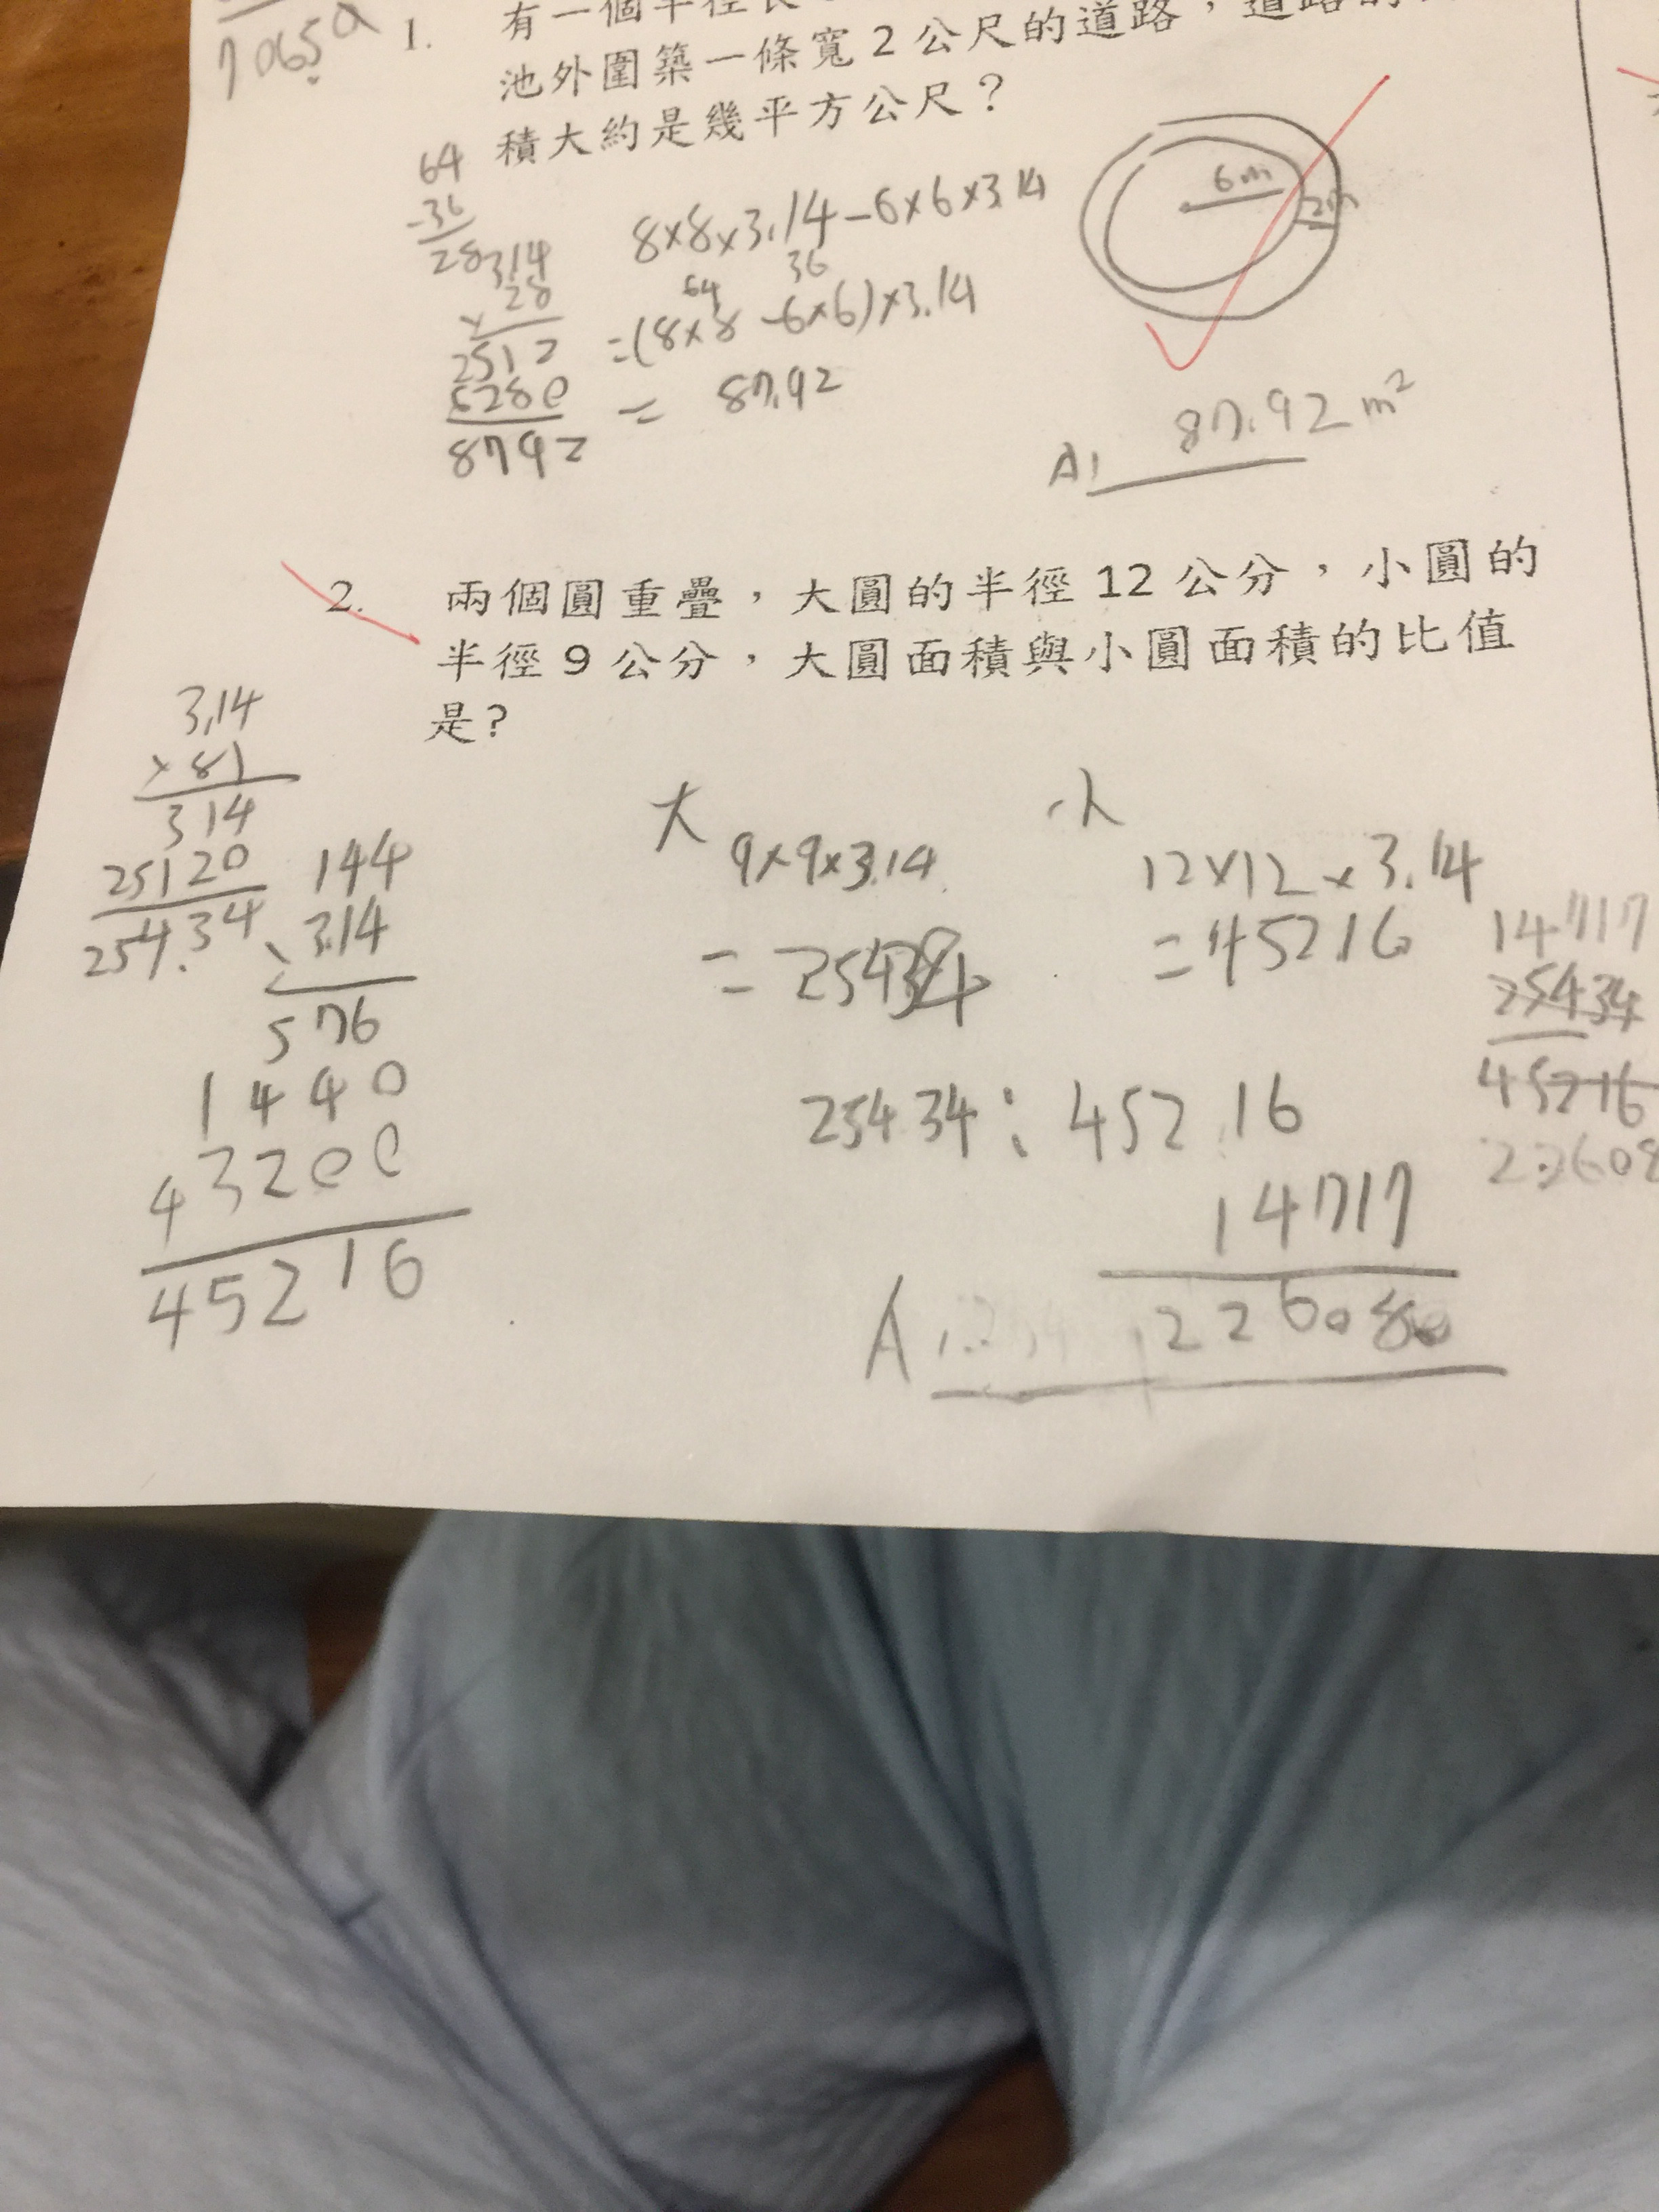 7065
1. 有一個半徑長
池外圍築一條寬2公尺的道路，道路的
積大約是幾平方公尺？
64
-36
28
314
×28
2512
6280
8792
8×8×3.14-6×6×3.14
64 36
=(8×8-6×6)×3.14
= 87.92
6m
2m
A: 87.92 m²
2. 兩個圓重疊，大圓的半徑12公分，小圓的
半徑9公分，大圓面積與小圓面積的比值
是?
3.14
×81
314
25120
254.34
144
×3.14
576
1440
43200
45216
大
9×9×3.14
=254.34
小
12×12×3.14
=452.16
254.34:452.16
14717
25434
45216
22608
A:
14717
22608